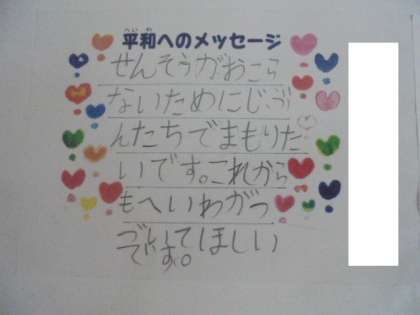 へいわ
平和へのメッセージ
せんそうがおこら
ないためにじぶ
んたちでまもりた
いです。これから
もへいわがつ
づいてほしい
です。